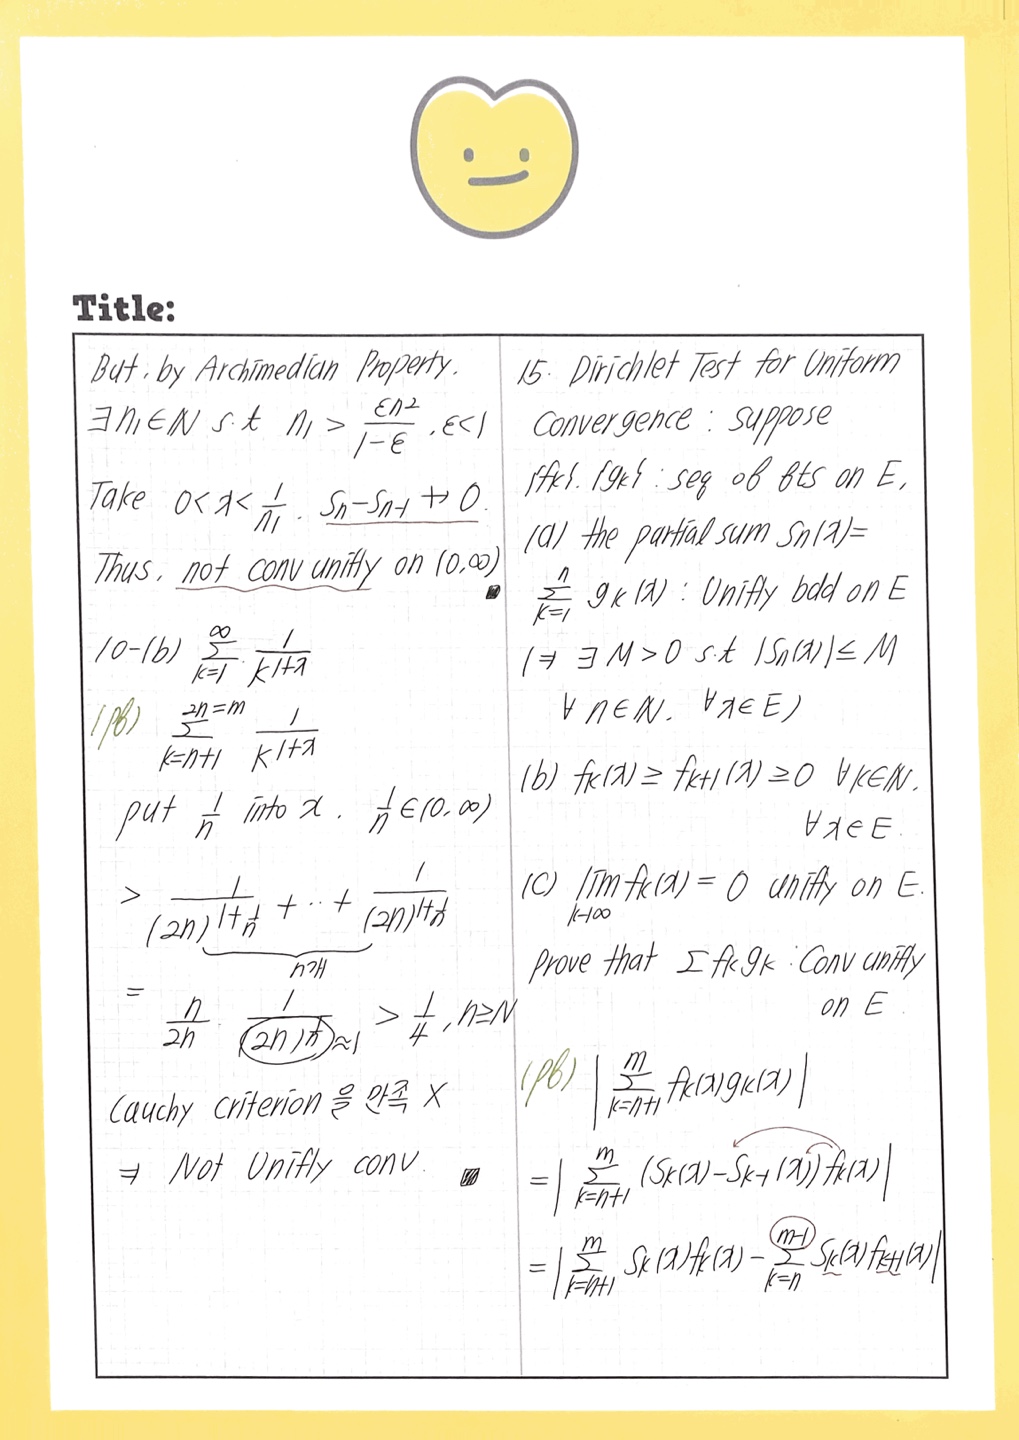 Title:
But, by Archimedian Property.
∃n₁∈N s.t n₁ > εn²/(1-ε) , ε<1
Take 0<x<1/n₁ . Sn-Sn-1 ↛ 0.
Thus, not conv unifly on (0,∞)
10-(b) ∑_{k=1}^{∞} 1/k^{1+x}
(pf) ∑_{k=n+1}^{2n=m} 1/k^{1+x}
put 1/n into x . 1/n ∈(0,∞)
> 1/(2n)^{1+1/n} + ··· + 1/(2n)^{1+1/n}
n개
= n/2n · 1/(2n)^{1/n} ≈1 > 1/4 , n≥N
Cauchy criterion을 만족 X
⇒ Not Unifly conv.
15. Dirichlet Test for Uniform
Convergence : suppose
{fk}. {gk} : seq of fts on E,
(a) the partial sum Sn(x)=
∑_{k=1}^{n} gk(x) : Unifly bdd on E
(⇒ ∃ M>0 s.t |Sn(x)|≤ M
∀ n∈N. ∀x∈E)
(b) fk(x) ≥ fk+1(x) ≥0 ∀k∈N.
∀x∈E.
(c) lim_{k→∞} fk(x) = 0 unifly on E.
Prove that ∑fkgk : Conv unifly
on E
(pf) |∑_{k=n+1}^{m} fk(x)gk(x)|
= |∑_{k=n+1}^{m} (Sk(x)-Sk-1(x)) fk(x)|
= |∑_{k=n+1}^{m} Sk(x)fk(x) - ∑_{k=n}^{m-1} Sk(x)fk+1(x)|